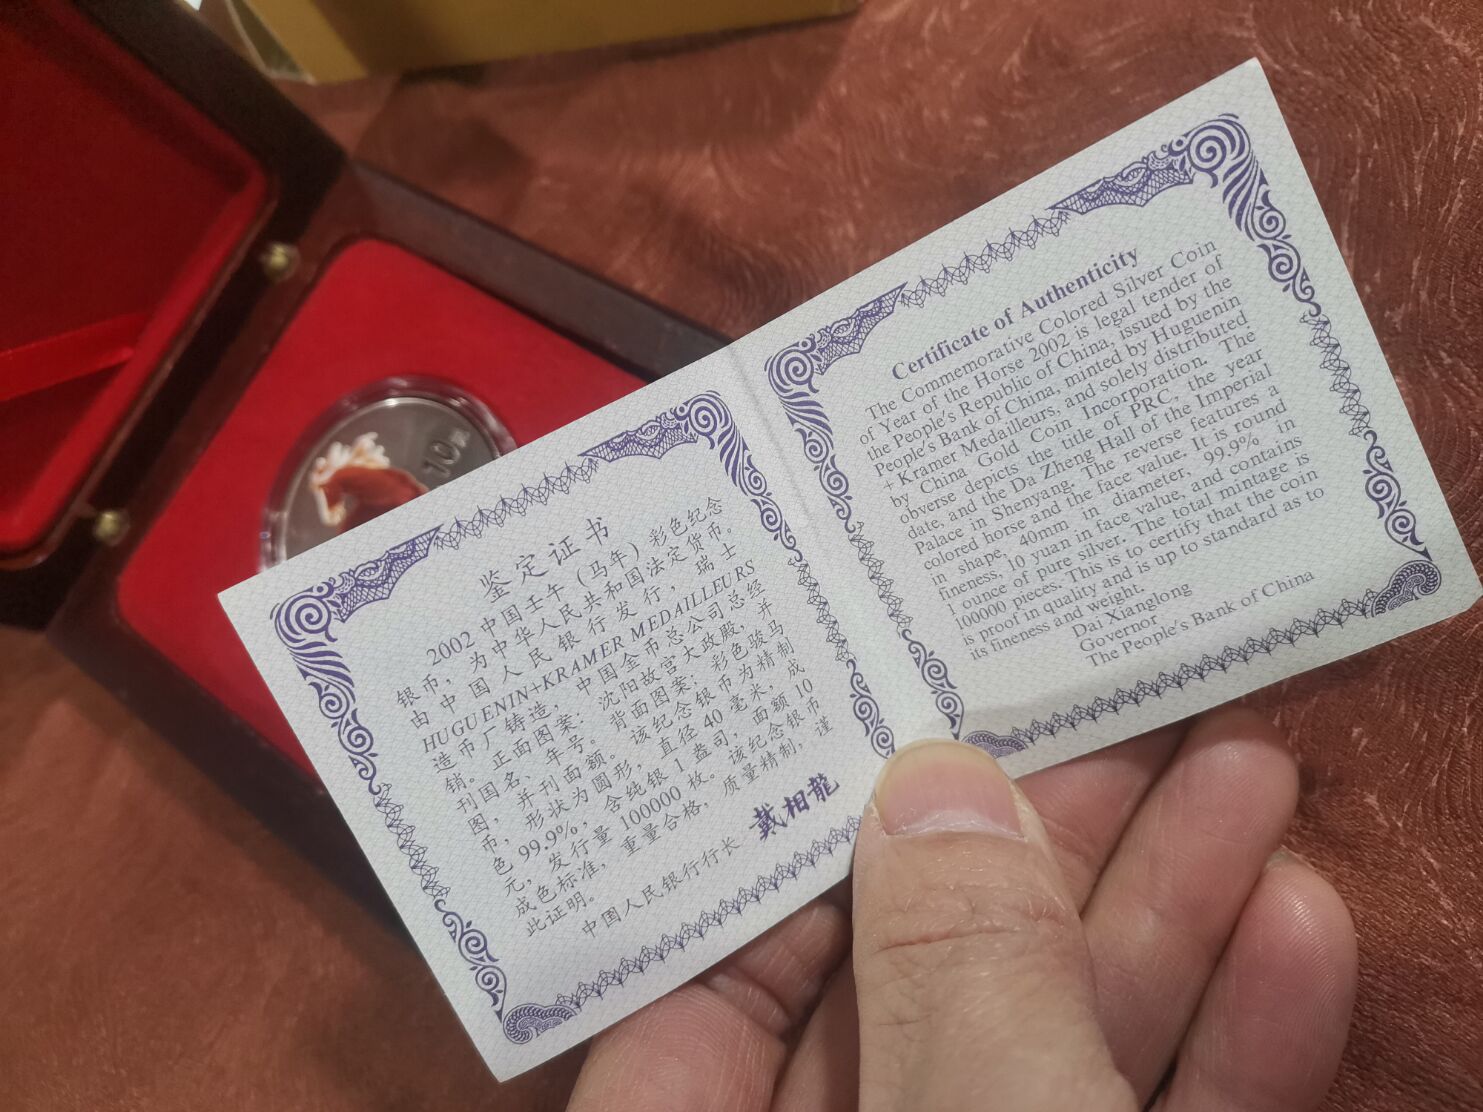 10元
鉴定证书
2002中国壬午（马年）彩色纪念
银币，为中华人民共和国法定货币。
由中国人民银行发行，瑞士
HUGUENIN+KRAMER MEDAILLEURS
造币厂铸造，中国金币总公司总经
销。正面图案：沈阳故宫大政殿，并
刊国名、年号。背面图案：彩色骏马
图，并刊面额。该纪念银币为精制
币，形状为圆形，直径40毫米，成
色99.9%，含纯银1盎司，面额10
元，发行量100000枚。该纪念银币
成色标准，重量合格，质量精制，谨
此证明。
中国人民银行行长 戴相龍
Certificate of Authenticity
The Commemorative Colored Silver Coin
of Year of the Horse 2002 is legal tender of
the People's Republic of China, issued by the
People's Bank of China, minted by Huguenin
+ Kramer Medailleurs, and solely distributed
by China Gold Coin Incorporation. The
obverse depicts the title of PRC, the year
date, and the Da Zheng Hall of the Imperial
Palace in Shenyang. The reverse features a
colored horse and the face value. It is round
in shape, 40mm in diameter, 99.9% in
fineness, 10 yuan in face value, and contains
1 ounce of pure silver. The total mintage is
100000 pieces. This is to certify that the coin
is proof in quality and is up to standard as to
its fineness and weight.
Dai Xianglong
Governor
The People's Bank of China